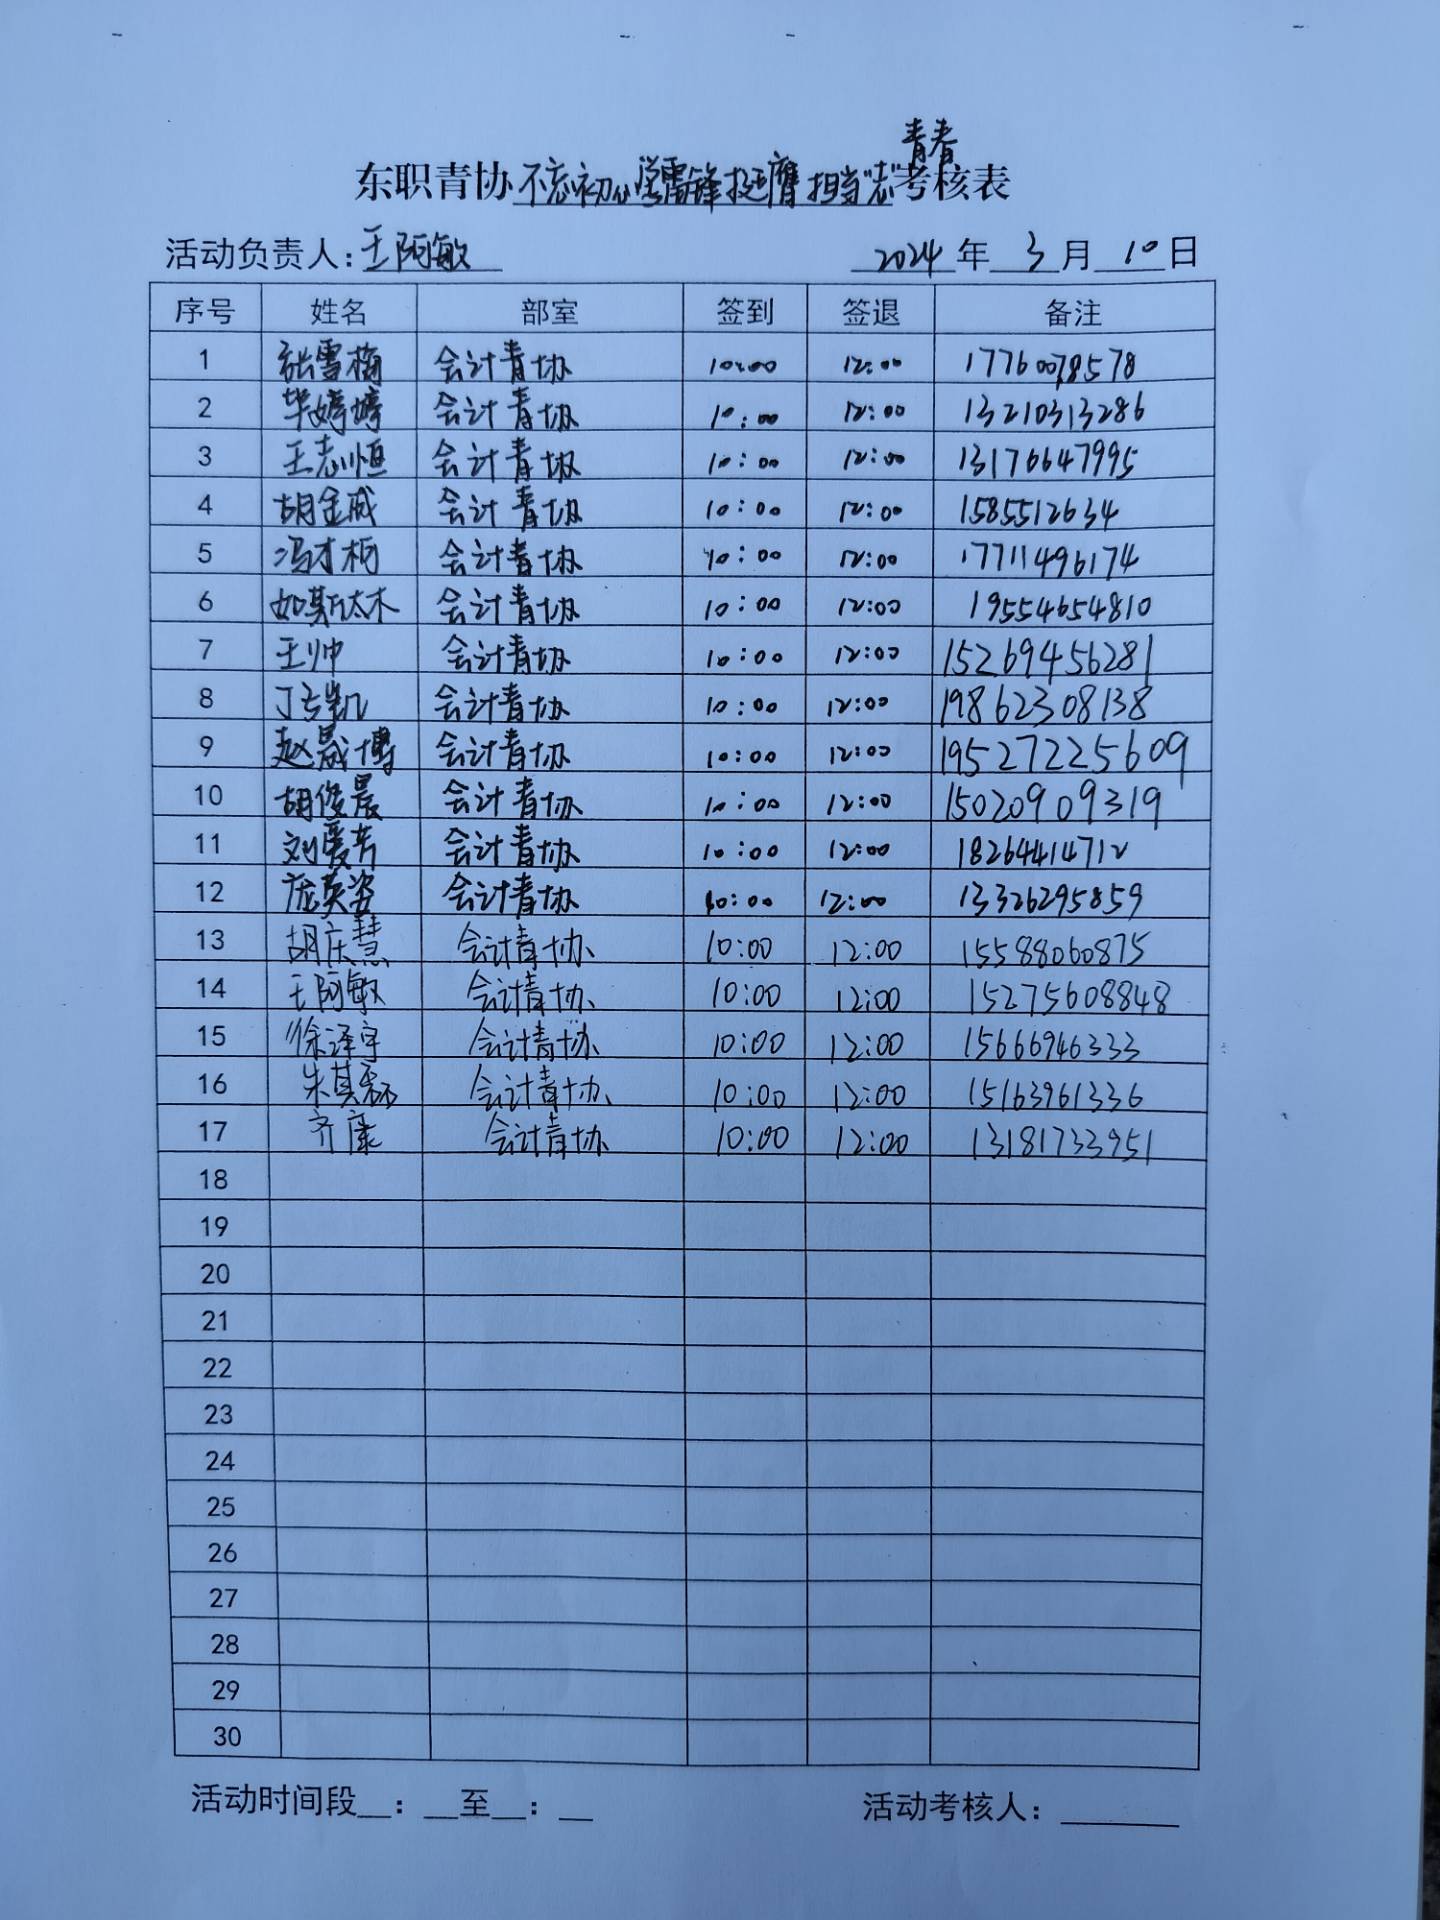 青春
东职青协不忘初心学雷锋挺膺担当"志"考核表
活动负责人：王阿敏 2024年 3月 10日
序号 姓名 部室 签到 签退 备注
1 张雪梅 会计青协 10:00 12:00 17760078578
2 毕婷婷 会计青协 10:00 12:00 13210313286
3 王志恒 会计青协 10:00 12:00 13176647995
4 胡金成 会计青协 10:00 12:00 1585512634
5 冯才柄 会计青协 10:00 12:00 17711496174
6 如斯太木 会计青协 10:00 12:00 19554654810
7 王帅 会计青协 10:00 12:00 15269456281
8 丁玄凯 会计青协 10:00 12:00 19862308138
9 赵晟博 会计青协 10:00 12:00 19527225609
10 胡俊晨 会计青协 10:00 12:00 15020909319
11 刘爱芳 会计青协 10:00 12:00 18264414712
12 庞英姿 会计青协 10:00 12:00 13326295859
13 胡庆慧 会计青协 10:00 12:00 15588060875
14 王阿敏 会计青协 10:00 12:00 15275608848
15 徐泽宇 会计青协 10:00 12:00 15666946333
16 朱其磊 会计青协 10:00 12:00 15163961336
17 齐康 会计青协 10:00 12:00 13181733951
18
19
20
21
22
23
24
25
26
27
28
29
30
活动时间段__：__至__：__ 活动考核人：______